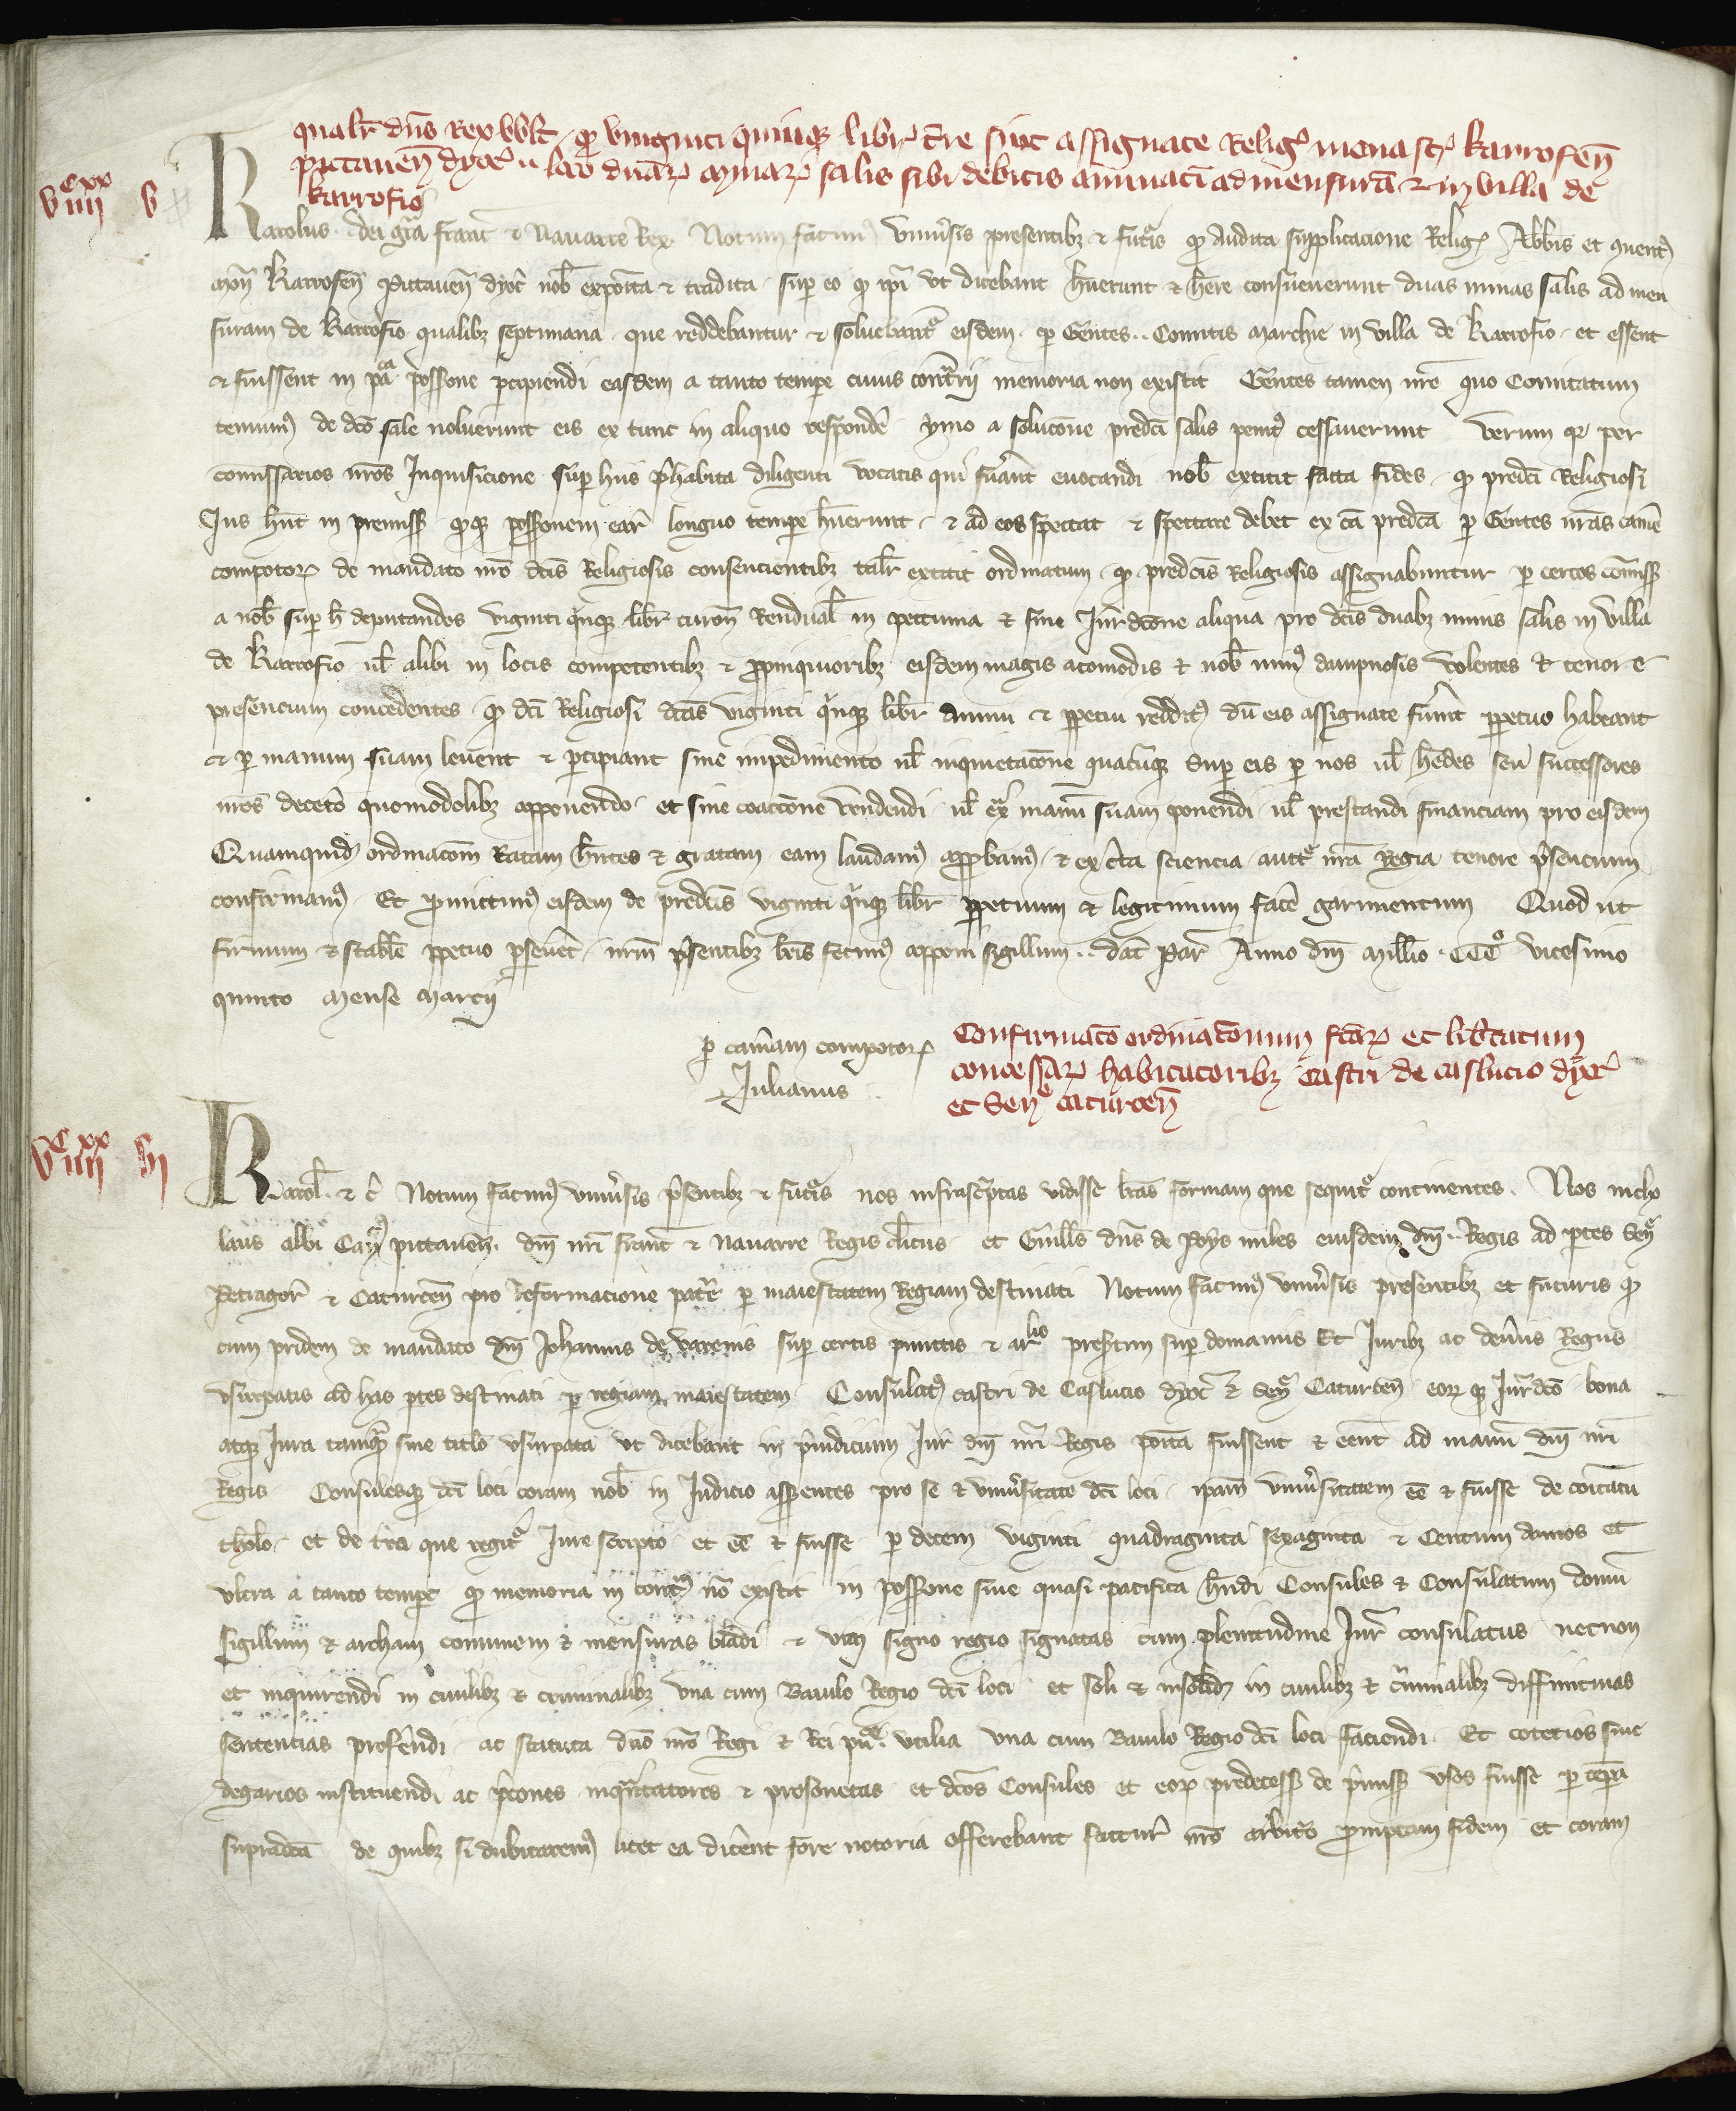 qualr dns Rex vvlt qp viginti quinqz libr tre sint assignate Religs monastr karrofen
pictaven dyoc in loco duarz minarz salis sibi debitis annuati ad mensura et in villa de
karrofio
vc xx iiii v
Karolus dei gra franc et Navarre Rex Notum facimus universis presentibz et futis qp Audita supplicacione Religs Abbis et quent
mon Karrofen Pictaven dyoc nob exposita et tradita sup eo qp ipi ut dicebant huerunt et here consueverunt duas minas salis ad men
suram de Karrofio qualibz septimana que reddebantur et solvebant eisdem p Gentes .. Comitis Marchie in villa de Karrofio et essent
et fuissent in pacca possone pcipiendi easdem a tanto tempe cuius contrii memoria non existit Gentes tamen nre quo Comitatum
tenuimus de dco sale noluerunt eis ex tunc in aliquo responde ymo a solucone predci salis penit cessaverunt Verum qz per
comissarios nros Inquisicione sup hiis phabita diligenti vocatis qui fuant evocandi nob extitit facta fides qp predci Religiosi
Ius hnt in premiss qpqz possonem ear longuo tempe huerunt et ad eos spectat et spectare debet ex ca predca p Gentes nras came
compotorz de mandato nro dcis Religiosis consencientibz talr extitit ordinatum qp predcis Religiosis assignabuntur p certos comiss
a nob sup h deputandos viginti qinqz libr turon Rendual in peccunia et sine Iurdcone aliqua pro dcis duabz minis salis in villa
de Karrofio ul alibi in locis competentibz et ppinquioribz eisdem magis acomodis et nob min dampnosis volentes et tenore
presencium concedentes qp dci Religiosi dcas viginti qinqz libr annui et ppetui reddit du eis assignate fuint ppetuo habeant
et p manum suam levent et pcipiant sine impedimento ul inquietacone quacunqz sup eis p nos ul hedes seu successores
nros deceto quomodolibz apponendo et sine coaccone vendendi ul ex manu suam ponendi ul prestandi financiam pro eisdem
Quamquid ordinacom Ratam hntes et gratam eam laudam appbam et ex cta sciencia auctte nra Regia tenore psencium
confirmam Et pmittim eisdem de predcis viginti qinqz libr ppetuum et legitimum face garimentum Quod ut
firmum et stabile ppetuo pseveet nrm psentibz lris fecim apponi sigillum .. dat Par Anno dni Millio CCCo vicesimo
quinto mense marcij
p camam compotorz
Iulianus
Confirmaco ordinaconum fcarz et libtatum
concessarz habitatoribz castri de caslucio dyoc
et Sene caturcen
vc xx iiii vi
Karol et c Notum facim universis psentibz et futis nos infrasciptas vidisse lras formam que sequit continentes. Nos nicho
laus albi Can pictaven. dni nri franc et Navarre Regis clicus et Guills dns de Noys miles eiusdem dni .. Regis ad ptes Sen
Petragor et Caturcen pro Reformacione patre p maiestatem Regiam destinati Notum facim universis presentibz et futuris qp
cum pridem de mandato dni Johannis de varenis sup certis punctis et arlis presertim sup domaniis Et Iuribz ac deveriis Regiis
usurpatis ad has ptes destinati p regiam maiestatem Consulat castri de Caslucio dyoc et Sen Caturcen eorqz Iurdco bona
atqz Iura tamqm sine titlo usurpata ut dicebant in piudicium Iur dni nri Regis posita fuissent et eent ad manu dni nri
Regis Consulesqz dci loci coram nob in Iudicio apparentes pro se et universitate dci loci ipam universitatem ee et fuisse de comitatu
tholo et de tra que regit Iure scripto et ee et fuisse p decem viginti quadraginta sexaginta et Centum annos et
ultra a tanto tempe qp memoria in contm no existit in possone sive quasi pacifica hndi Consules et Consulatum domu
sigillum et archam comunem et mensuras bladi et vini signo regio signatas cum plenitudine Iur consulatus necnon
et inquirendi in civilibz et criminalibz una cum Baiulo Regio dci loci et soli et insolid in civilibz et ciminalibz diffinitivas
sentencias profendi ac statuta dno nro Regi et Rei pu utilia una cum Baiulo Regio dci loci faciendi Et coterios sive
degarios instituendi ac pcones inqntatores et prosonetas et dcos Consules et eorz predecess de pmiss usos fuisse p tepa
supradca de quibz si dubitarem licet ea dicent fore notoria offerebant facturi nro arbitio promptam fidem et coram